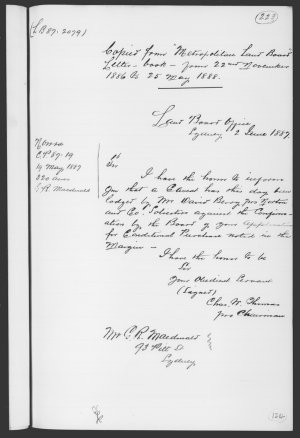 (223)
(LB 87.2079)
Copied from Metropolitan Land Board
Letter-book - from 22nd November
1886 to 25 May 1888.
Land Board Office
Sydney 2 June 1887.
Nowra
C.P 87.19
19 May 1887
320 acres
C. R. Macdonald
Sir
I have the honor to inform
you that a Caveat has this day been
lodged by Mr David Berry per Norton
and Co. Solicitors against the Confirma-
tion by the Board of your application
for Conditional Purchase noted in the
Margin -
I have the honor to be
Sir
Your Obedient Servant
(Signed)
Chas. W.
pro Chairman
Mr C. R. Macdonald
93 Pitt St
Sydney